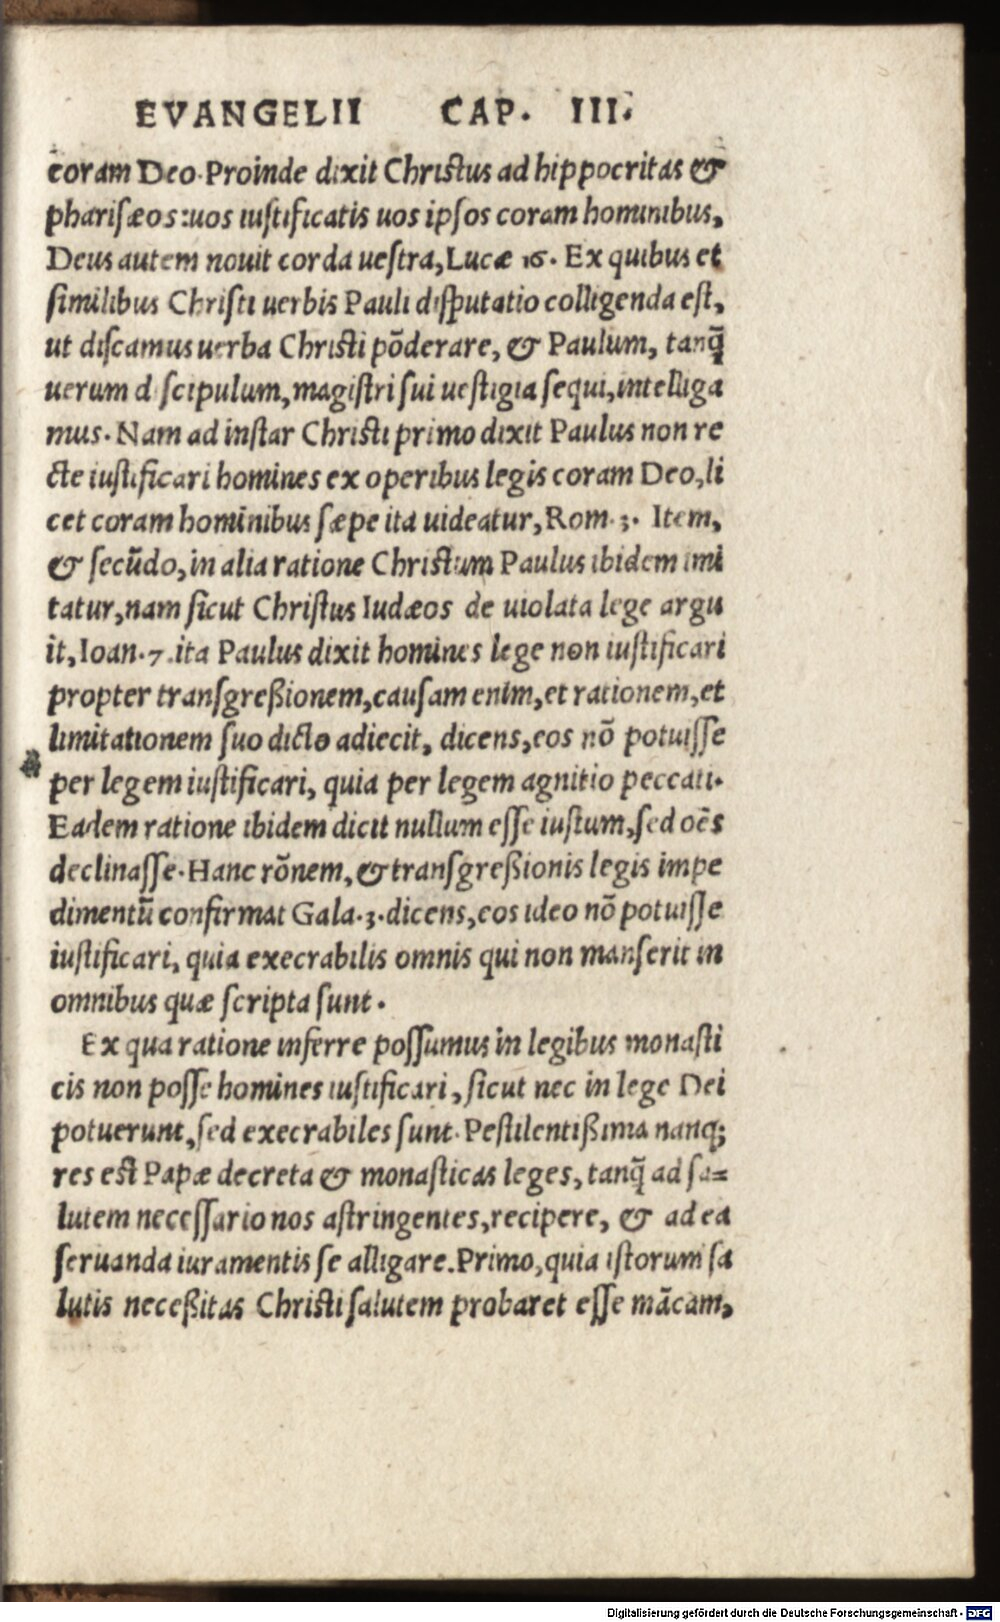 EVANGELII CAP. III.
coram Deo. Proinde dixit Christus ad hippocritas &
pharisæos: uos iustificatis uos ipsos coram hominibus,
Deus autem nouit corda uestra, Lucæ 16. Ex quibus et
similibus Christi uerbis Pauli disputatio colligenda est,
ut discamus uerba Christi põderare, & Paulum, tanq̃
uerum discipulum, magistri sui uestigia sequi, intelliga
mus. Nam ad instar Christi primo dixit Paulus non re
cte iustificari homines ex operibus legis coram Deo, li
cet coram hominibus sæpe ita uideatur, Rom. 3. Item,
& secũdo, in alia ratione Christum Paulus ibidem imi
tatur, nam sicut Christus Iudæos de uiolata lege argu
it, Ioan. 7. ita Paulus dixit homines lege non iustificari
propter transgreßionem, causam enim, et rationem, et
limitationem suo dicto adiecit, dicens, eos nõ potuisse
per legem iustificari, quia per legem agnitio peccati.
Eadem ratione ibidem dicit nullum esse iustum, sed oẽs
declinasse. Hanc rõnem, & transgreßionis legis impe
dimentũ confirmat Gala. 3. dicens, eos ideo nõ potuisse
iustificari, quia execrabilis omnis qui non manserit in
omnibus quæ scripta sunt.
Ex qua ratione inferre possumus in legibus monasti
cis non posse homines iustificari, sicut nec in lege Dei
potuerunt, sed execrabiles sunt. Pestilentißima nanq;
res est Papæ decreta & monasticas leges, tanq̃ ad sa=
lutem necessario nos astringentes, recipere, & ad ea
seruanda iuramentis se alligare. Primo, quia istorum sa
lutis neceßitas Christi salutem probaret esse mãcam,
Digitalisierung gefördert durch die Deutsche Forschungsgemeinschaft - DFG